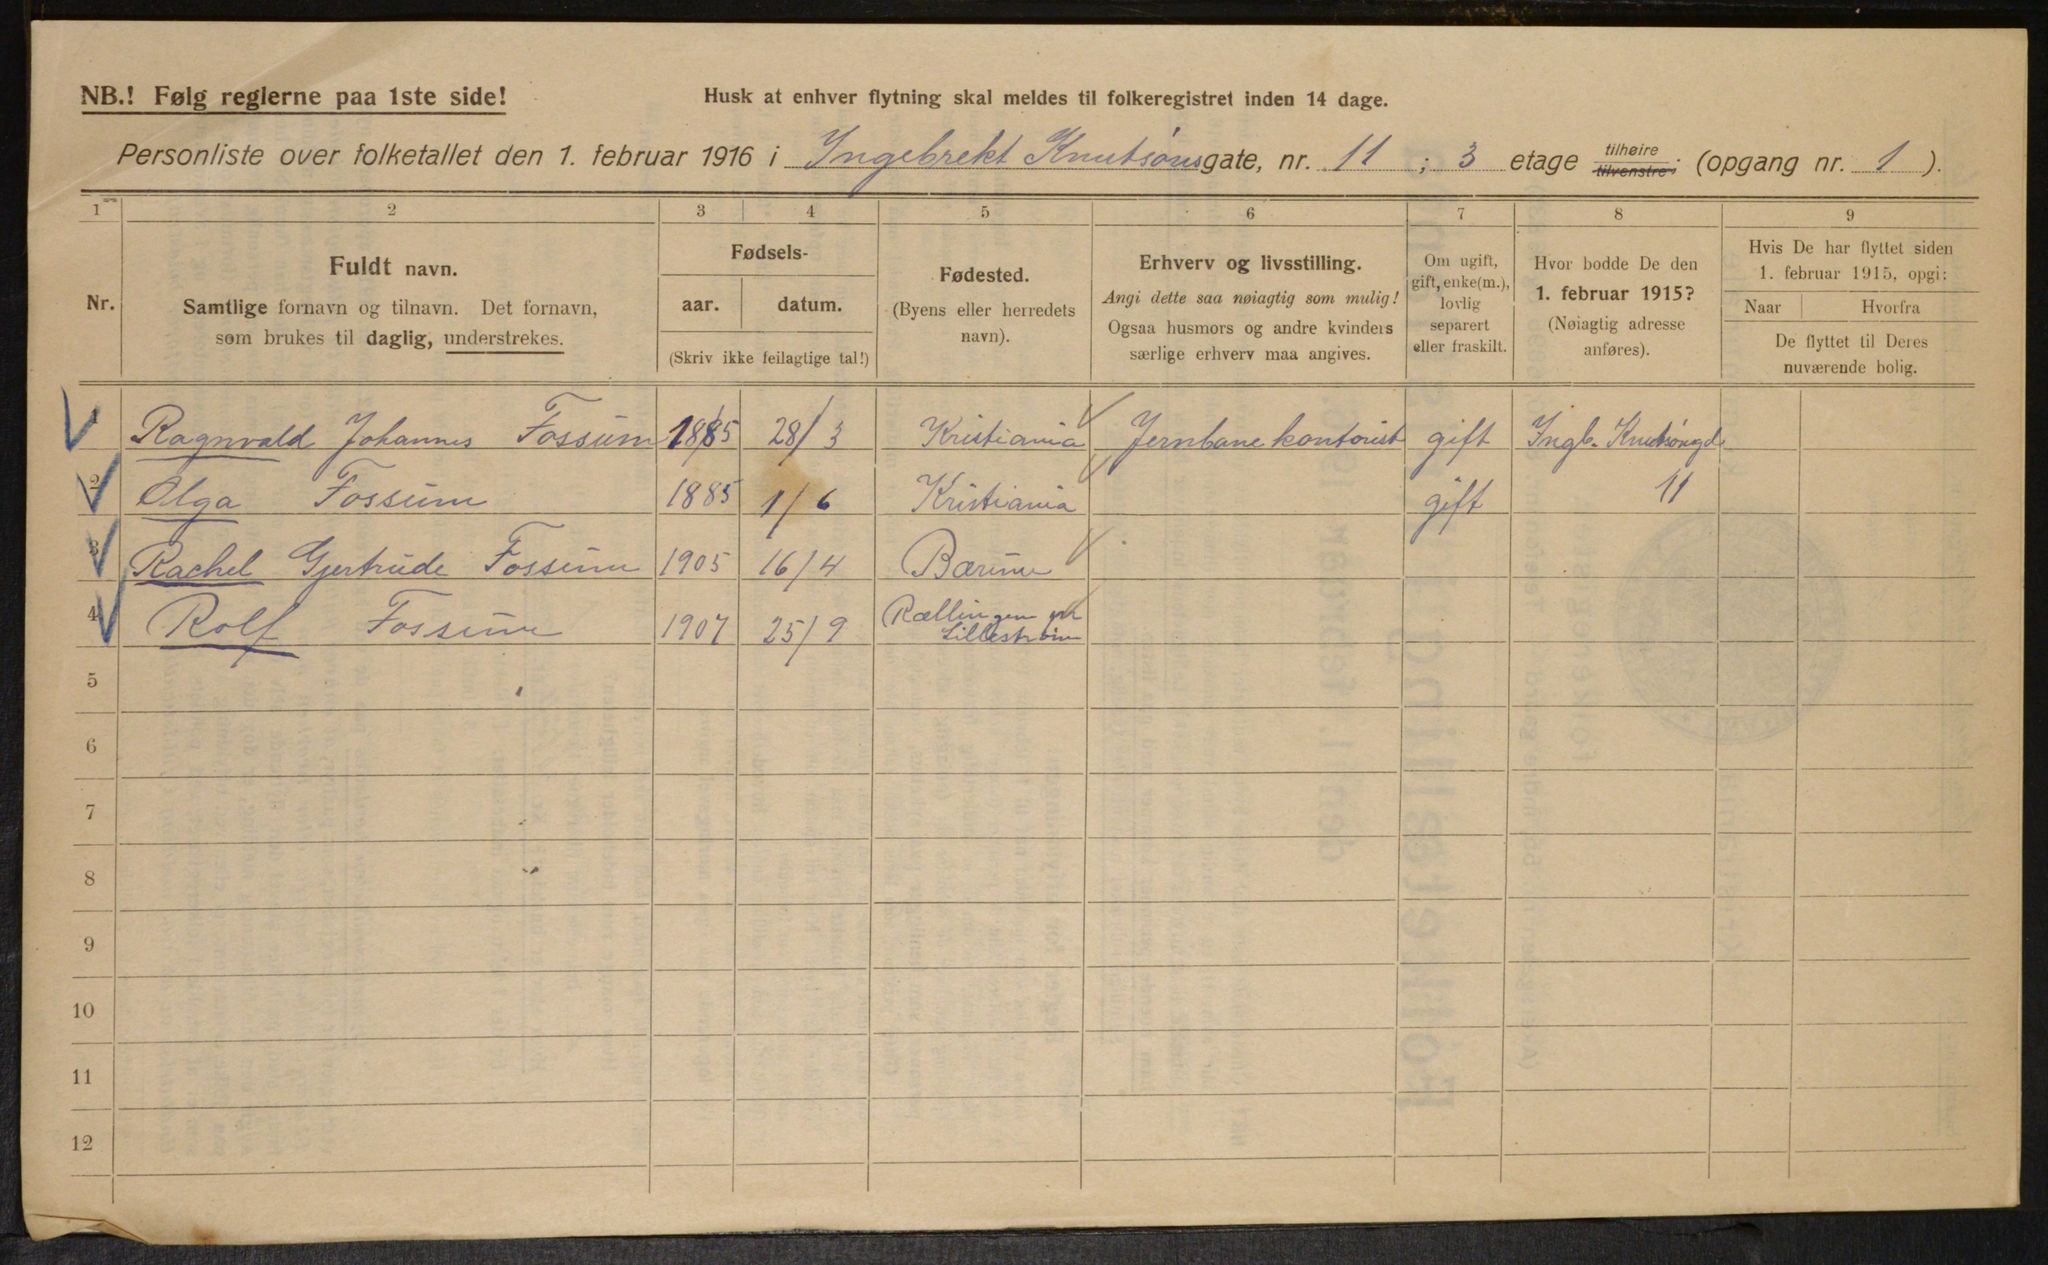 NB.! Følg reglerne paa 1ste side!
Husk at enhver flytning skal meldes til folkeregistret inden 14 dage.
Personliste over folketallet den 1. februar 1916 i Ingebrekt Knutsønsgate, nr. 11 ; 3 etage tilhøire tilvenstre; (opgang nr. 1 ).
1 2 3 4 5 6 7 8 9
Nr.
Fuldt navn.
Samtlige fornavn og tilnavn. Det fornavn,
som brukes til daglig, understrekes.
Fødsels-
aar. datum.
(Skriv ikke feilagtige tal!)
Fødested.
(Byens eller herredets
navn).
Erhverv og livsstilling.
Angi dette saa nøiagtig som mulig!
Ogsaa husmors og andre kvinders
særlige erhverv maa angives.
Om ugift,
gift, enke(m.),
lovlig
separert
eller fraskilt.
Hvor bodde De den
1. februar 1915?
(Nøiagtig adresse
anføres).
Hvis De har flyttet siden
1. februar 1915, opgi:
Naar Hvorfra
De flyttet til Deres
nuværende bolig.
Ragnvald Johannes Fossum 1885 28/3 Kristiania Jernbanekontorist gift Ingb. Knutsønsgd
2 Olga Fossum 1885 1/6 Kristiania gift 11
3 Rachel Gjertrude Fossum 1905 16/4 Bærum
4 Rolf Fossum 1907 25/9 Rællingen pr
Lillestrøm
5
6
7
8
9
10
11
12